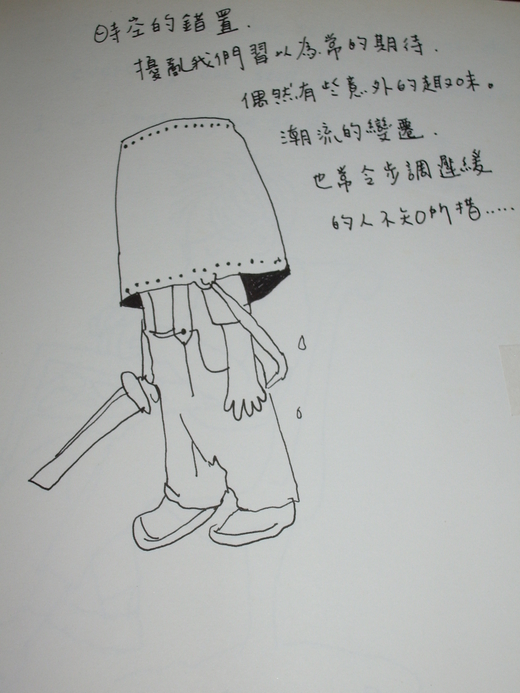 時空的錯置.
擾亂我們習以為常的期待.
偶然有些意外的趣味。
潮流的變遷.
也常令步調遲緩
的人不知所措.....